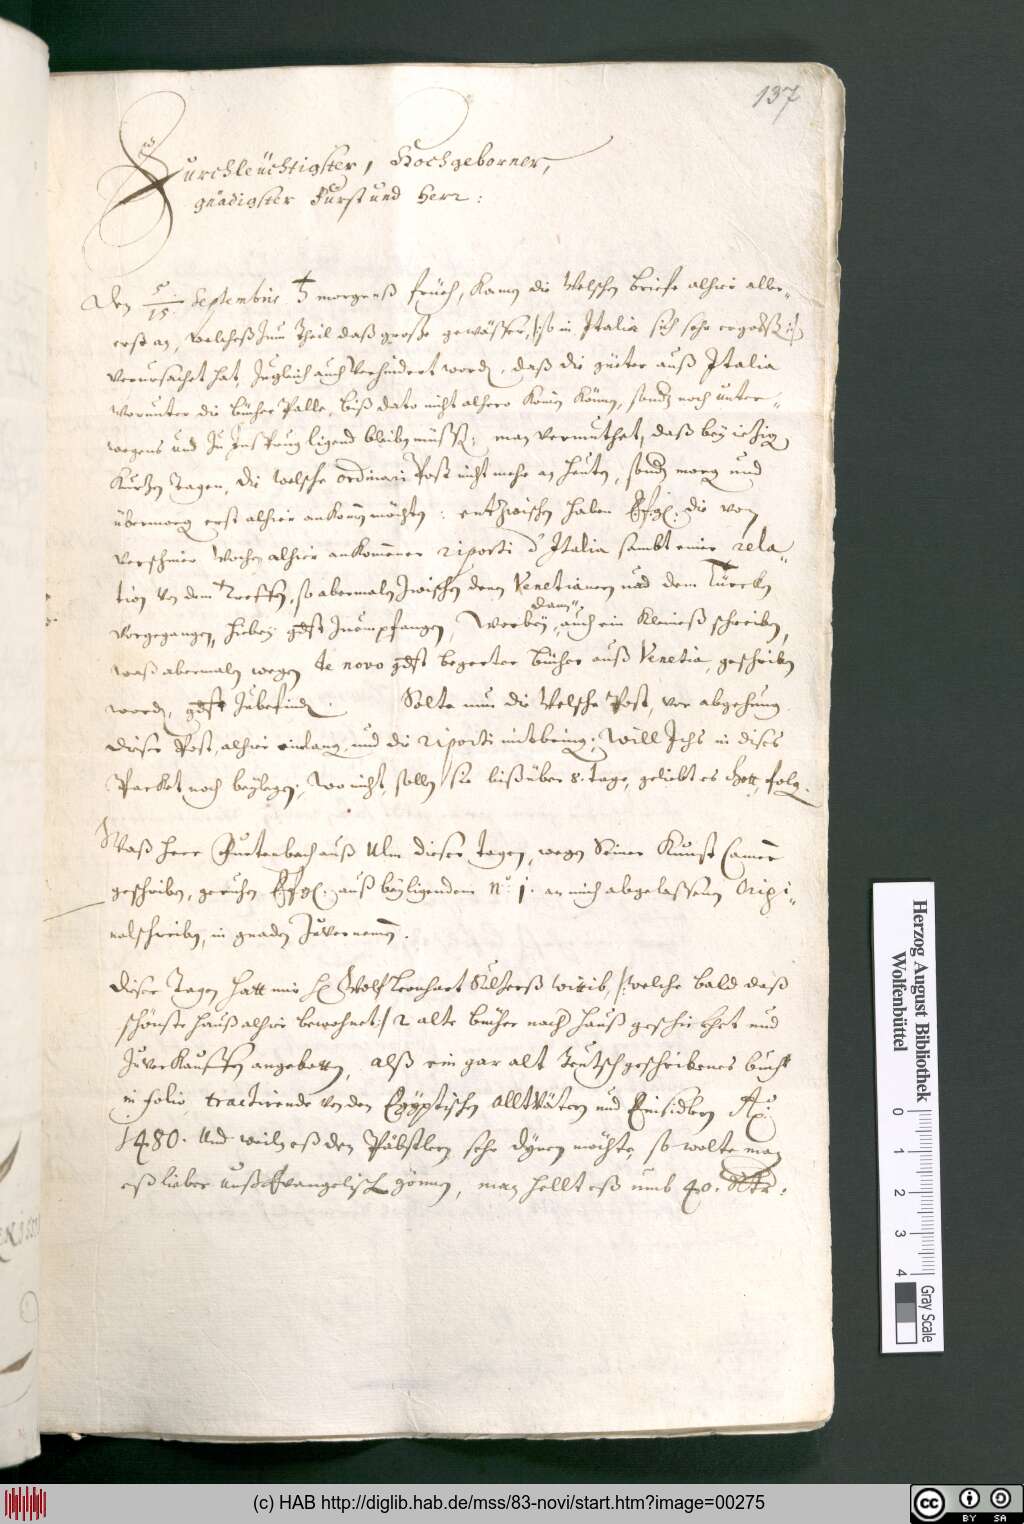 137
Durchleüchtigster, Hochgeborner,
gnädigster Fürst und Herr:
Den 5/15 Septembris ♄ morgenß früeh, kamen die Welschen briefe alhier aller-
erst an, welcheß zum theil daß große gewässer, /: so in Italia sich sehr ergossen :/
verursachet hat, zugleich auch verhindert worden, daß die güeter auß Italia
worunter die büecher Palle, biß dato nicht alhero komen können, sondern noch unter-
wegens und zu Insprug ligend bleiben müssen: man vermuthet, daß bey ietzigen
kurtzen tagen, die welsche ordinari Post nicht mehr an heuten, sondern morgen und
übermorgen erst alhier ankommen möchten: entzwischen haben Efgl. die von
verschiner Wochen alhier ankommener riporti d'Italia sambt einer rela-
tion von dem treffen, so abermalen zwischen denen Venetianern und dem Türcken
vorgegangen, hiebey gdst zu empfangen, Worbey dann auch ein kleineß schreiben,
waß abermalen wegen de novo gdst begerter büecher auß Venetia, geschriben
worden, gdst zubefinden. Solte nun die Welsche Post, vor abgehung
dieser Post, alhier einlangen, und die riporti mitbringen, will Ichs in dises
Packet noch beylegen, wo nicht, sollen sie biß über 8. tage, geliebt es Gott, folgen.
Waß Herr Furtenbach auß Ulm dieser tagen, wegen Seiner Kunst Camer
geschriben, geruhen Efgl. auß beyligendem N.º 1. an mich abgelassenen Origi-
nalschreiben, in gnaden zuvernemen.
Diser Tagen hatt mir H Wolf Leonhart Sulzerß wittib, /: welche bald daß
schönste hauß alhier bewohnet :/ 2 alte büecher nach hauß geschickhet und
zu verkauffen angebotten, alß ein gar alt Teutsch geschribenes buch
in folio, tractirende von den Egÿptischen Alltvätern und Einsidlern Aº:
1480. Und weiln eß den Päbstlern sehr dienen möchte, so wolte man
eß lieber unß Evangelisch gönnen, man hellt eß umb 40. Rthr:
Herzog August Bibliothek
Wolfenbüttel
0 1 2 3 4
Gray Scale
(c) HAB http://diglib.hab.de/mss/83-novi/start.htm?image=00275
cc BY SA